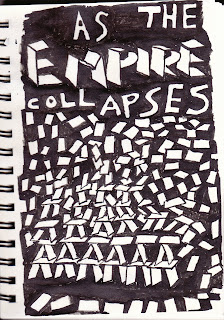 AS THE
EMPIRE
COLLAPSES